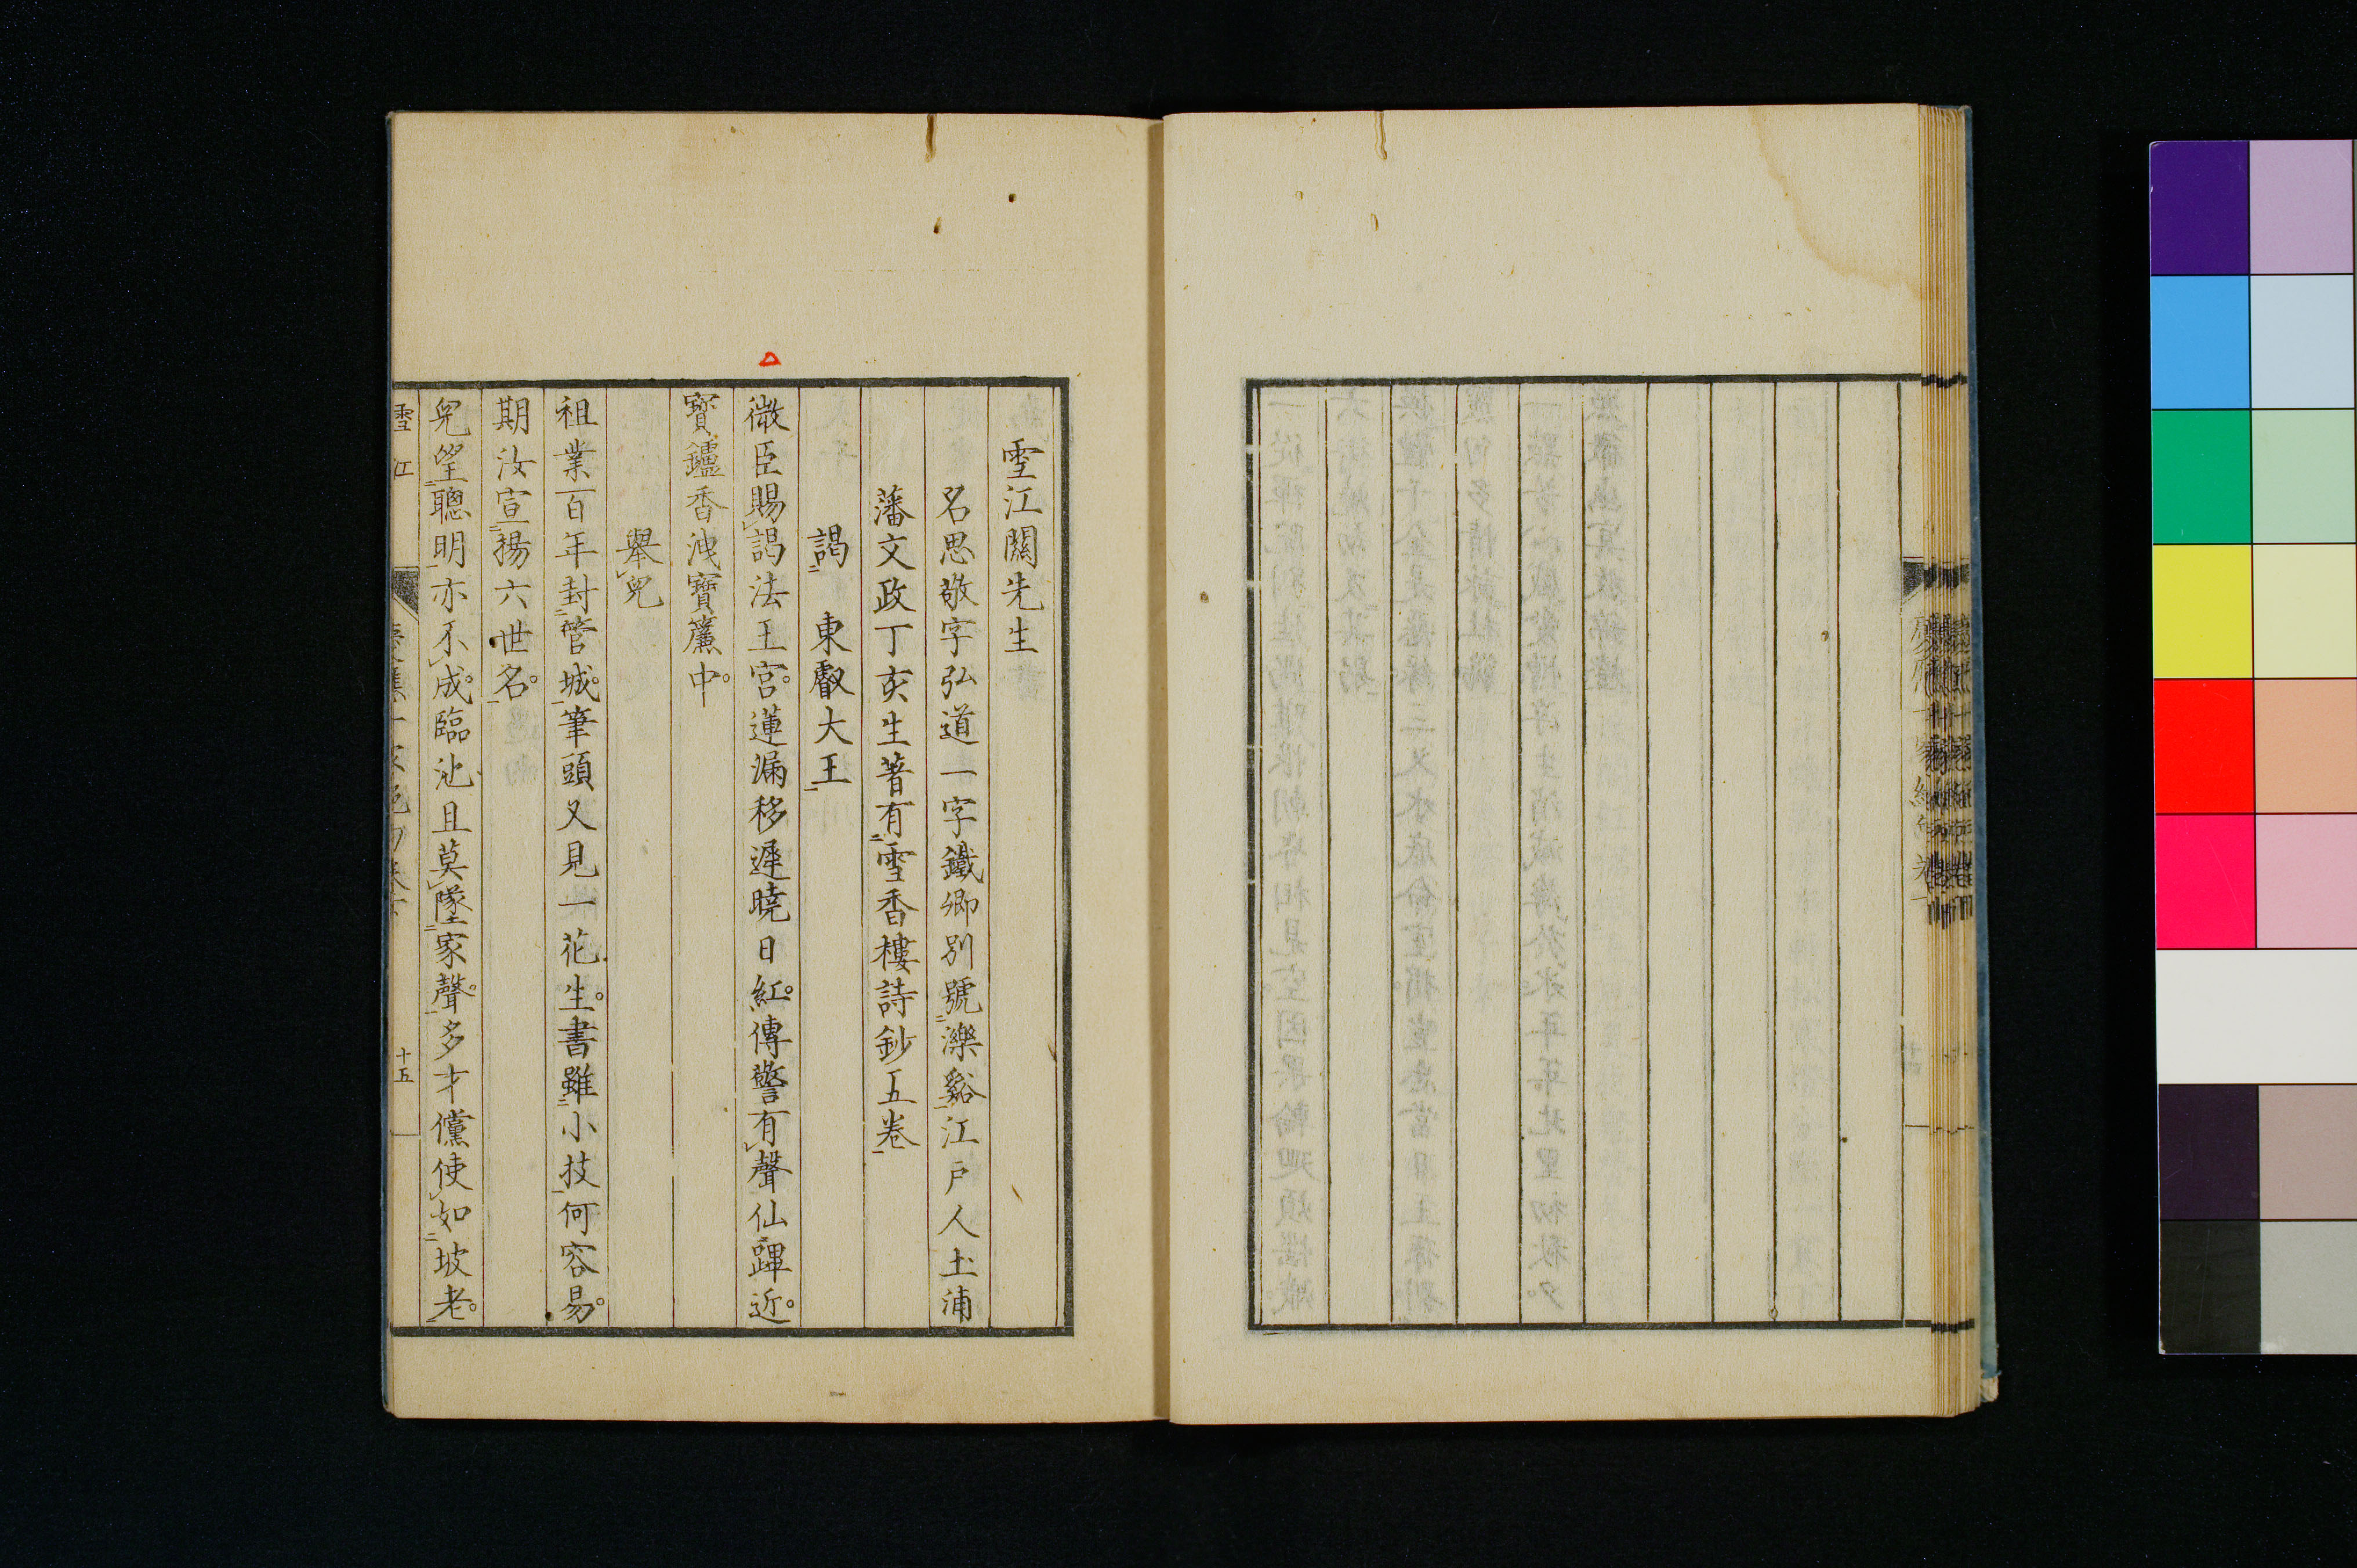 雪江關先生
名思敬字弘道一字鐵卿別號濼谿江戶人土浦
藩文政丁亥生著有雪香樓詩鈔五卷
謁　東叡大王
微臣賜謁法王宮。蓮漏移遲曉日紅。傳警有聲仙蹕近。
寶鑪香洩寶簾中。
擧兒
祖業百年封管城。筆頭又見一花生。書雖小技何容易。
期汝宣揚六世名。
兒望聰明亦不成。臨池且莫墜家聲。多才儻使如坡老。
雪江
十五